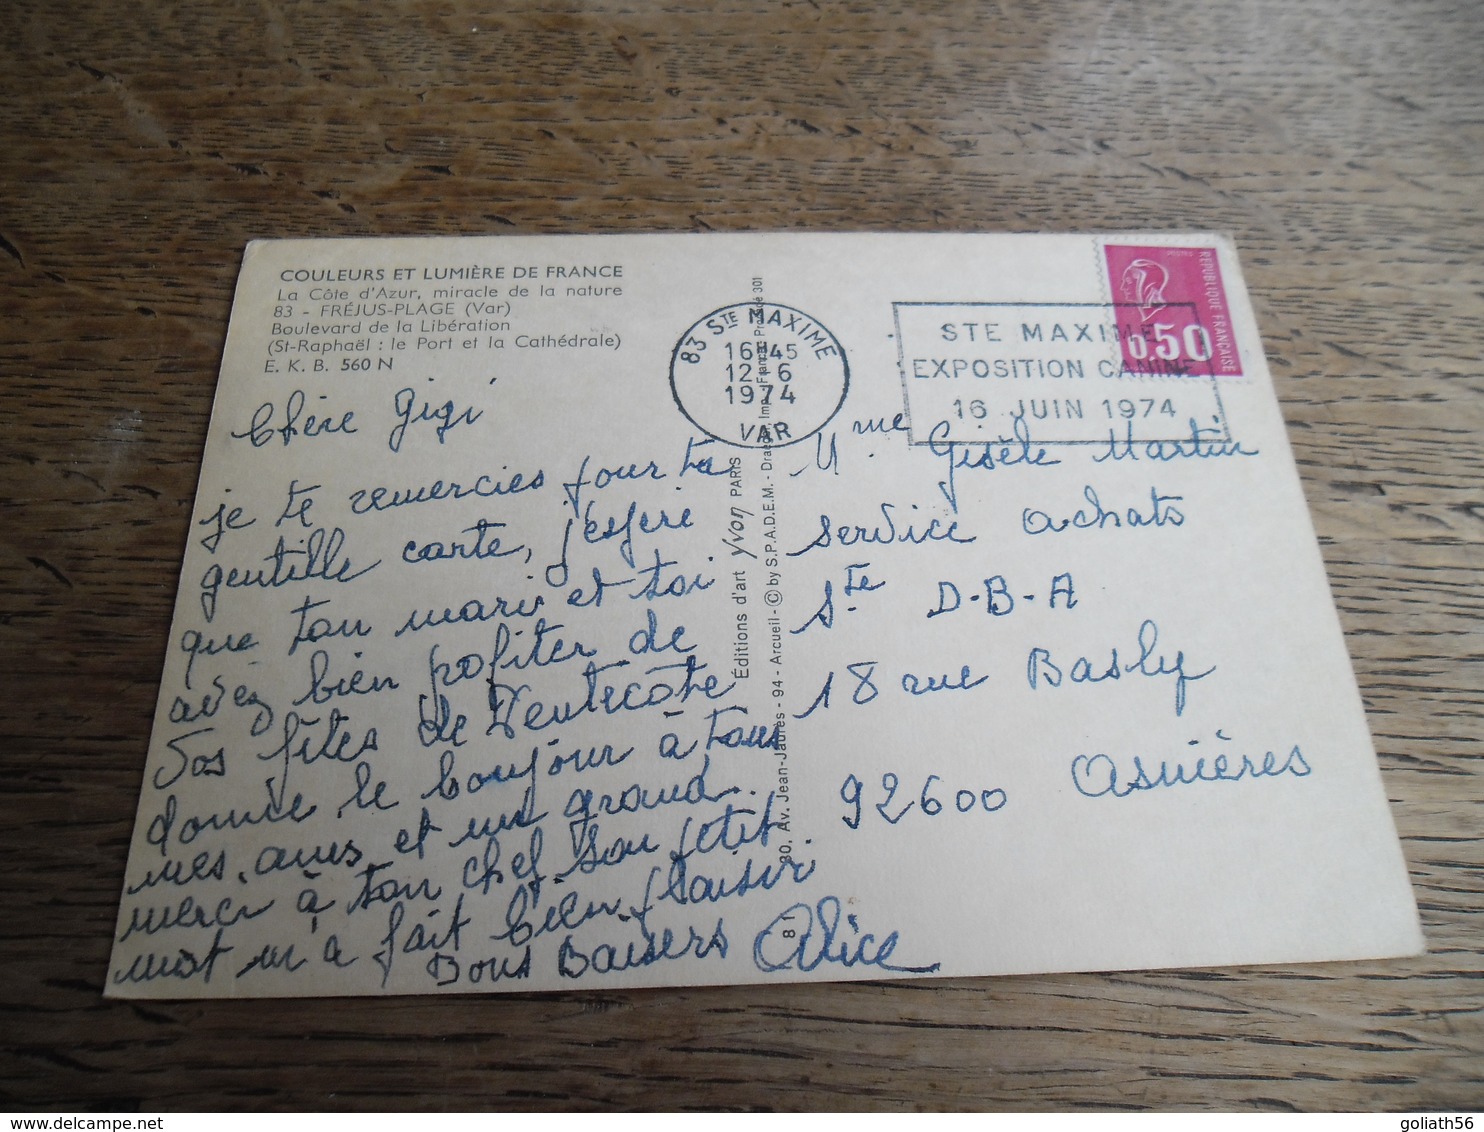 COULEURS ET LUMIÈRE DE FRANCE
La Côte d'Azur, miracle de la nature
83 - FRÉJUS-PLAGE (Var)
Boulevard de la Libération
(St-Raphaël : le Port et la Cathédrale)
E. K. B. 560 N
Chère Gigi
je te remercies pour ta
gentille carte, j'espère
que ton mari et toi
avez bien profiter de
vos fêtes de Pentecôte
donne le bonjour à tous
mes amis et un grand
merci à ton chef son petit
mot m'a fait bien plaisir
Bons Baisers Alice
Éditions d'art Yvon PARIS
30, Av. Jean-Jaurès - 94 - Arcueil - © by S.P.A.D.E.M. -
81
83 STE MAXIME
16H45
12 - 6
1974
VAR
STE MAXIME
EXPOSITION CANINE
16 JUIN 1974
RÉPUBLIQUE FRANÇAISE
0,50
Mme Gisèle Martin
Service achats
Sté D-B-A
18 rue Basly
92600 Asnières
goliath56